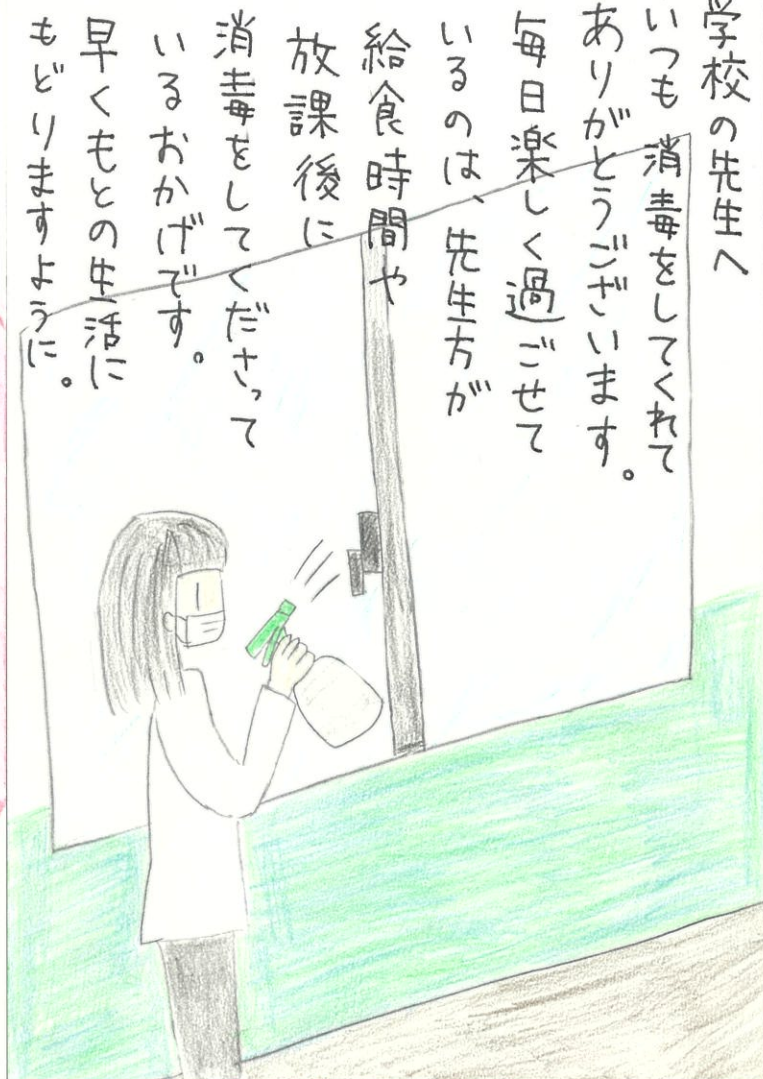 学校の先生へ
いつも消毒をしてくれて
ありがとうございます。
毎日楽しく過ごせて
いるのは、先生方が
給食時間や
放課後に
消毒をしてくださって
いるおかげです。
早くもとの生活に
もどりますように。